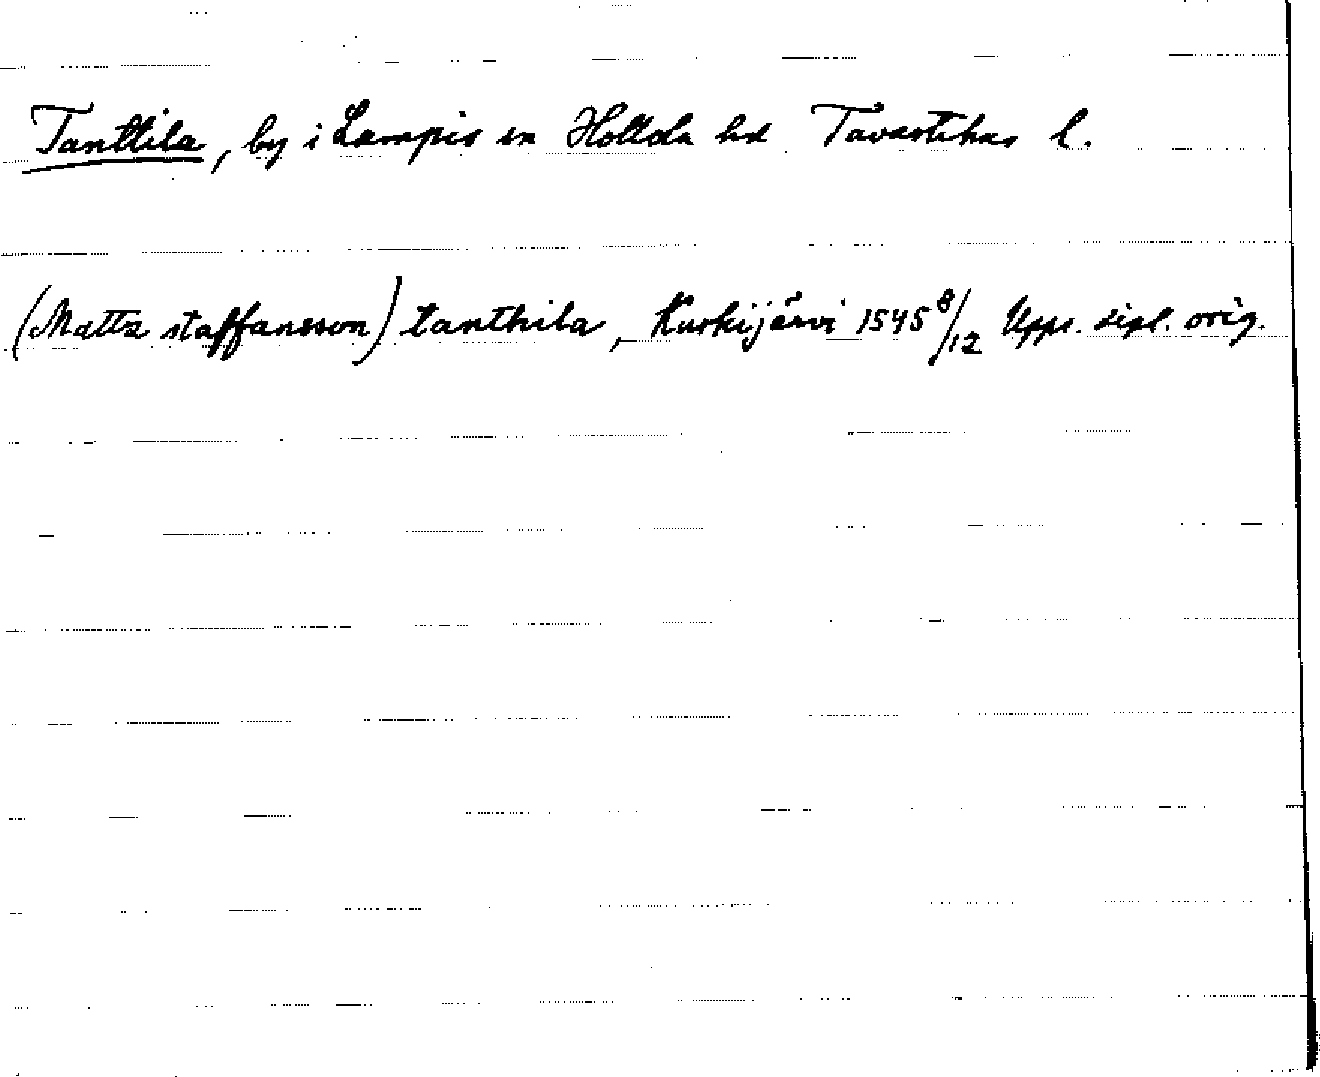 Tanttila, by i Lampis sn Hollola hd Tavastehus l.
(Matts staffansson) tanthila, Kurkijärvi 1545 8/12 Upps. dipl. orig.